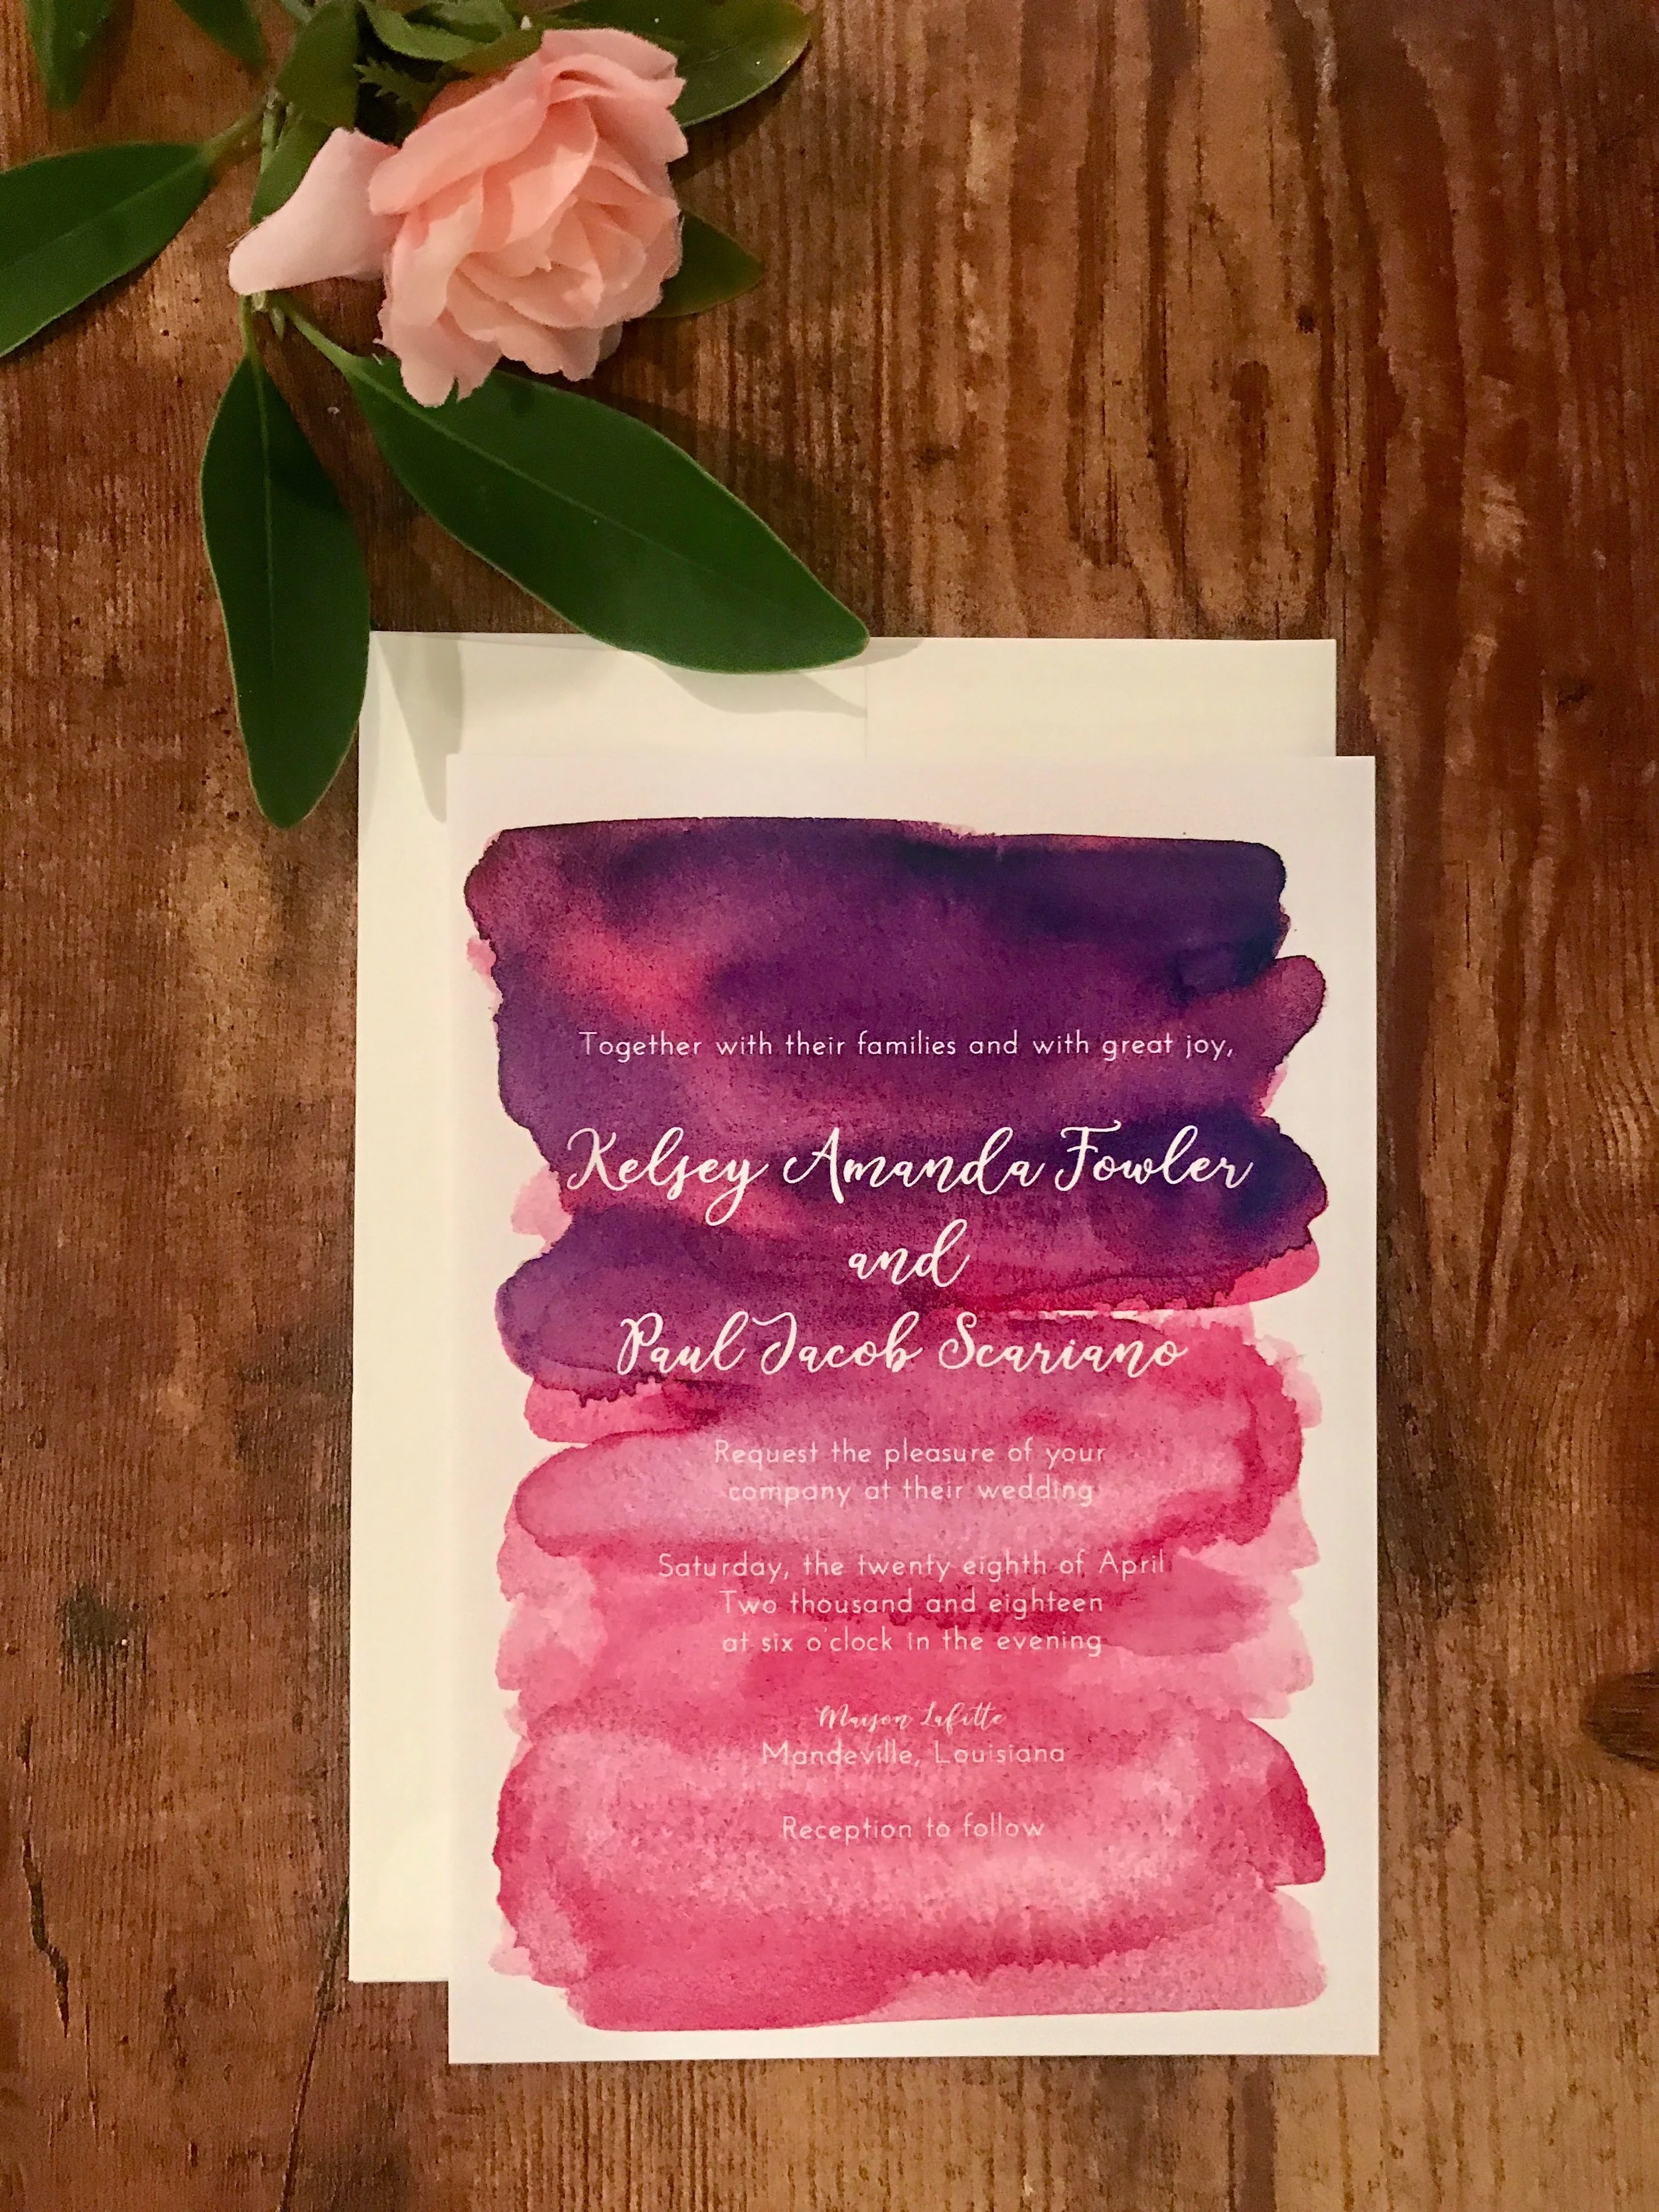 Together with their families and with great joy,
Kelsey Amanda Fowler
and
Paul Jacob Scariano
Request the pleasure of your
company at their wedding
Saturday, the twenty eighth of April
Two thousand and eighteen
at six o'clock in the evening
Maison Lafitte
Mandeville, Louisiana
Reception to follow